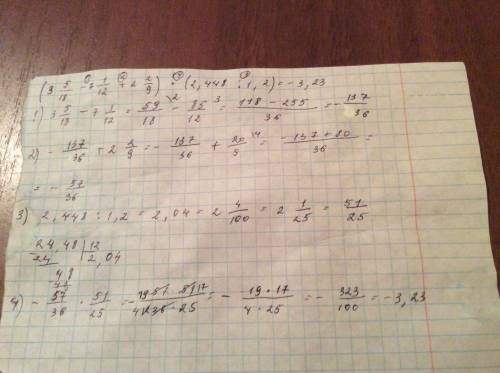 (3 5/18 - 7 1/12 + 2 2/9) · (2,448 : 1,2) = -3,23
1) 3 5/18 - 7 1/12 = 59/18 \2 - 85/12 \3 = 118 - 255/36 = - 137/36
2) - 137/36 + 2 2/9 = - 137/36 + 20/9 \4 = -137 + 80/36 =
= - 57/36
3) 2,448 : 1,2 = 2,04 = 2 4/100 = 2 1/25 = 51/25
24,48 | 12
24 2,04
48
48
4) - 57/36 · 51/25 = - 19 57 · 51 17/4 12 36 · 25 = - 19 · 17/4 · 25 = - 323/100 = -3,23